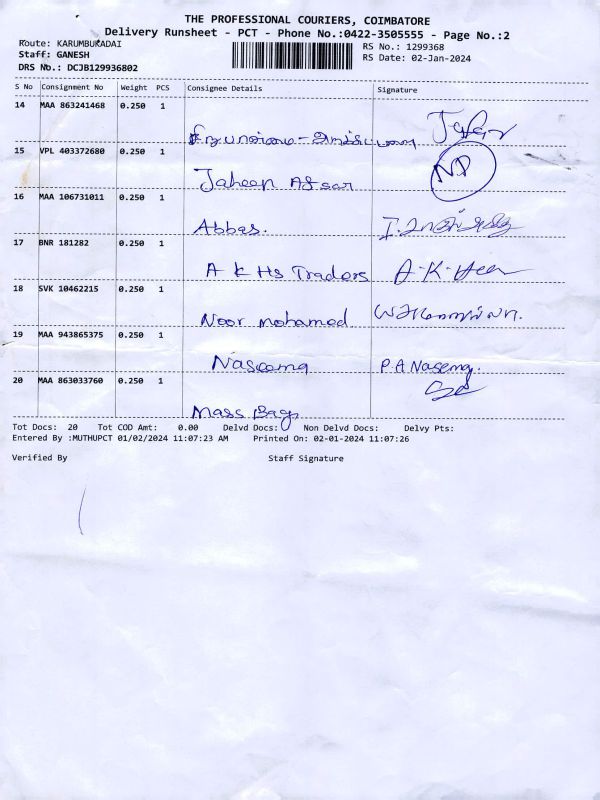 THE PROFESSIONAL COURIERS, COIMBATORE
Delivery Runsheet - PCT - Phone No.:0422-3505555 - Page No.:2
Route: KARUMBUKADAI
RS No.: 1299368
Staff: GANESH
RS Date: 02-Jan-2024
DRS No.: DCJB129936802
S No Consignment No Weight PCS Consignee Details Signature
14 MAA 863241468 0.250 1
15 VPL 403372680 0.250 1 ND
Jaheen Afsar
16 MAA 106731011 0.250 1
Abbas.
17 BNR 181282 0.250 1
A K Hs Traders A-K-
18 SVK 10462215 0.250 1
Noor mohamed
19 MAA 943865375 0.250 1
Naseema P.A Nasema.
20 MAA 863033760 0.250 1
Mass Bag
Tot Docs: 20 Tot COD Amt: 0.00 Delvd Docs: Non Delvd Docs: Delvy Pts:
Entered By :MUTHUPCT 01/02/2024 11:07:23 AM Printed On: 02-01-2024 11:07:26
Verified By Staff Signature